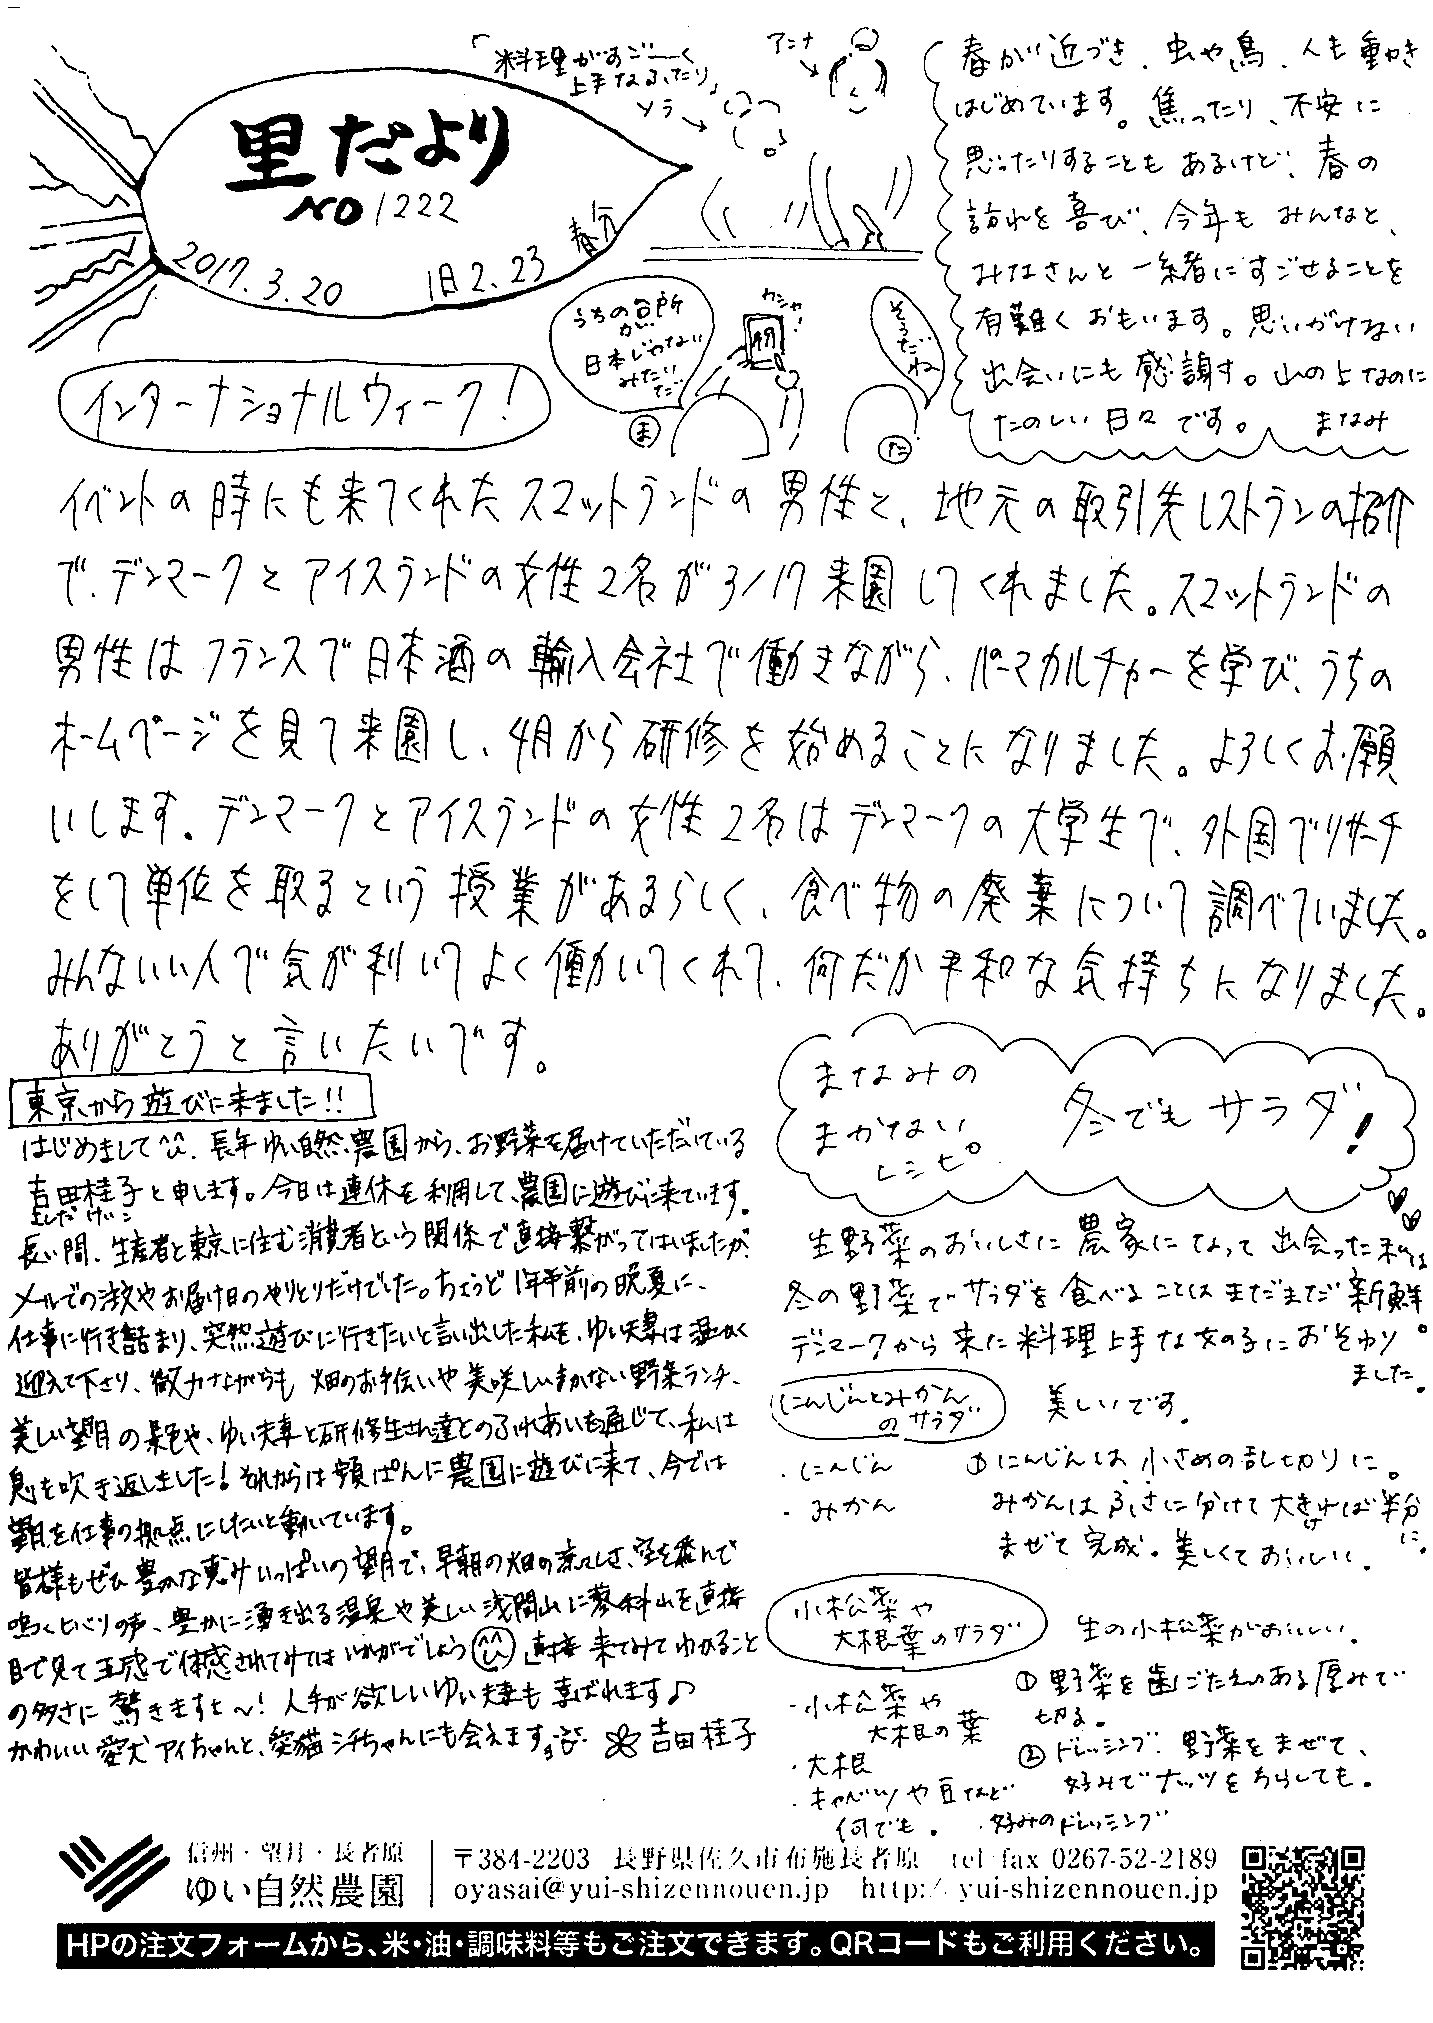 「料理がすごーく
上手なふたり」
ソラ
アンナ
里だより
NO 1222
2017.3.20 旧2.23 春分
うちの台所
が
日本じゃない
みたい
だ
ま
カシャ!
そうだね
た
春が近づき、虫や鳥、人も動き
はじめています。焦ったり、不安に
思ったりすることもあるけど、春の
訪れを喜び、今年もみんなと、
みなさんと一緒にすごせることを
有難くおもいます。思いがけない
出会いにも感謝す。山の上なのに
たのしい日々です。 まなみ
インターナショナルウィーク!
イベントの時にも来てくれたスコットランドの男性と、地元の取引先レストランの紹介
で、デンマークとアイスランドの女性2名が3/17来園してくれました。スコットランドの
男性はフランスで日本酒の輸入会社で働きながら、パーマカルチャーを学び、うちの
ホームページを見て来園し、4月から研修を始めることになりました。よろしくお願
いします。デンマークとアイスランドの女性2名はデンマークの大学生で、外国でリサーチ
をして単位を取るという授業があるらしく、食べ物の廃棄について調べていました。
みんないい人で気が利いてよく働いてくれて、何だか平和な気持ちになりました。
ありがとうと言いたいです。
東京から遊びに来ました!!
はじめまして^^。長年ゆい自然農園から、お野菜を届けていただいている
吉田桂子と申します。今日は連休を利用して、農園に遊びに来ています。
よしだけいこ
長い間、生産者と東京に住む消費者という関係で直接繋がってはいましたが、
メールでの注文やお届け日のやりとりだけでした。ちょうど1年半前の晩夏に、
仕事に行き詰まり、突然遊びに行きたいと言い出した私を、ゆい夫妻は温かく
迎えて下さり、微力ながらも畑のお手伝いや美味しいまかない野菜ランチ、
美しい望月の景色や、ゆい夫妻と研修生さん達とのふれあいを通じて、私は
息を吹き返しました!それからは頻ぱんに農園に遊びに来て、今では
望月を仕事の拠点にしたいと動いています。
皆様もぜひ豊かな恵みいっぱいの望月で、早朝の畑の涼しさ、空を飛んで
鳴くひばりの声、豊かに湧き出る温泉や美しい浅間山に蓼科山を直接
目で見て五感で体感されてみてはいかがでしょう 直接来てみてわかること
の多さに驚きますよ〜!人手が欲しいゆい夫妻も喜ばれます♪
かわいい愛犬アイちゃんと、愛猫シチちゃんにも会えます 吉田桂子
まなみの
まかない
レシピ。
冬でもサラダ!
生野菜のおいしさに農家になって出会った私は
冬の野菜でサラダを食べることはまだまだ新鮮。
デンマークから来た料理上手な女の子におそわり
ました。
にんじんとみかん
のサラダ
美しいです。
・にんじん
・みかん
①にんじんは小さめの乱切りに。
みかんはふさに分けて大きければ半分
に。
まぜて完成。美しくておいしい。
小松菜や
大根葉のサラダ
生の小松菜がおいしい。
・小松菜や
大根の葉
・大根
・キャベツや豆など
何でも。
・好みのドレッシング
①野菜を歯ごたえのある厚みで
切る。
②ドレッシング、野菜をまぜて、
好みでナッツをちらしても。
信州・望月・長者原
ゆい自然農園
〒384-2203 長野県佐久市布施長者原 tel fax 0267-52-2189
oyasai@yui-shizennouen.jp http:/ yui-shizennouen.jp
HPの注文フォームから、米・油・調味料等もご注文できます。QRコードもご利用ください。